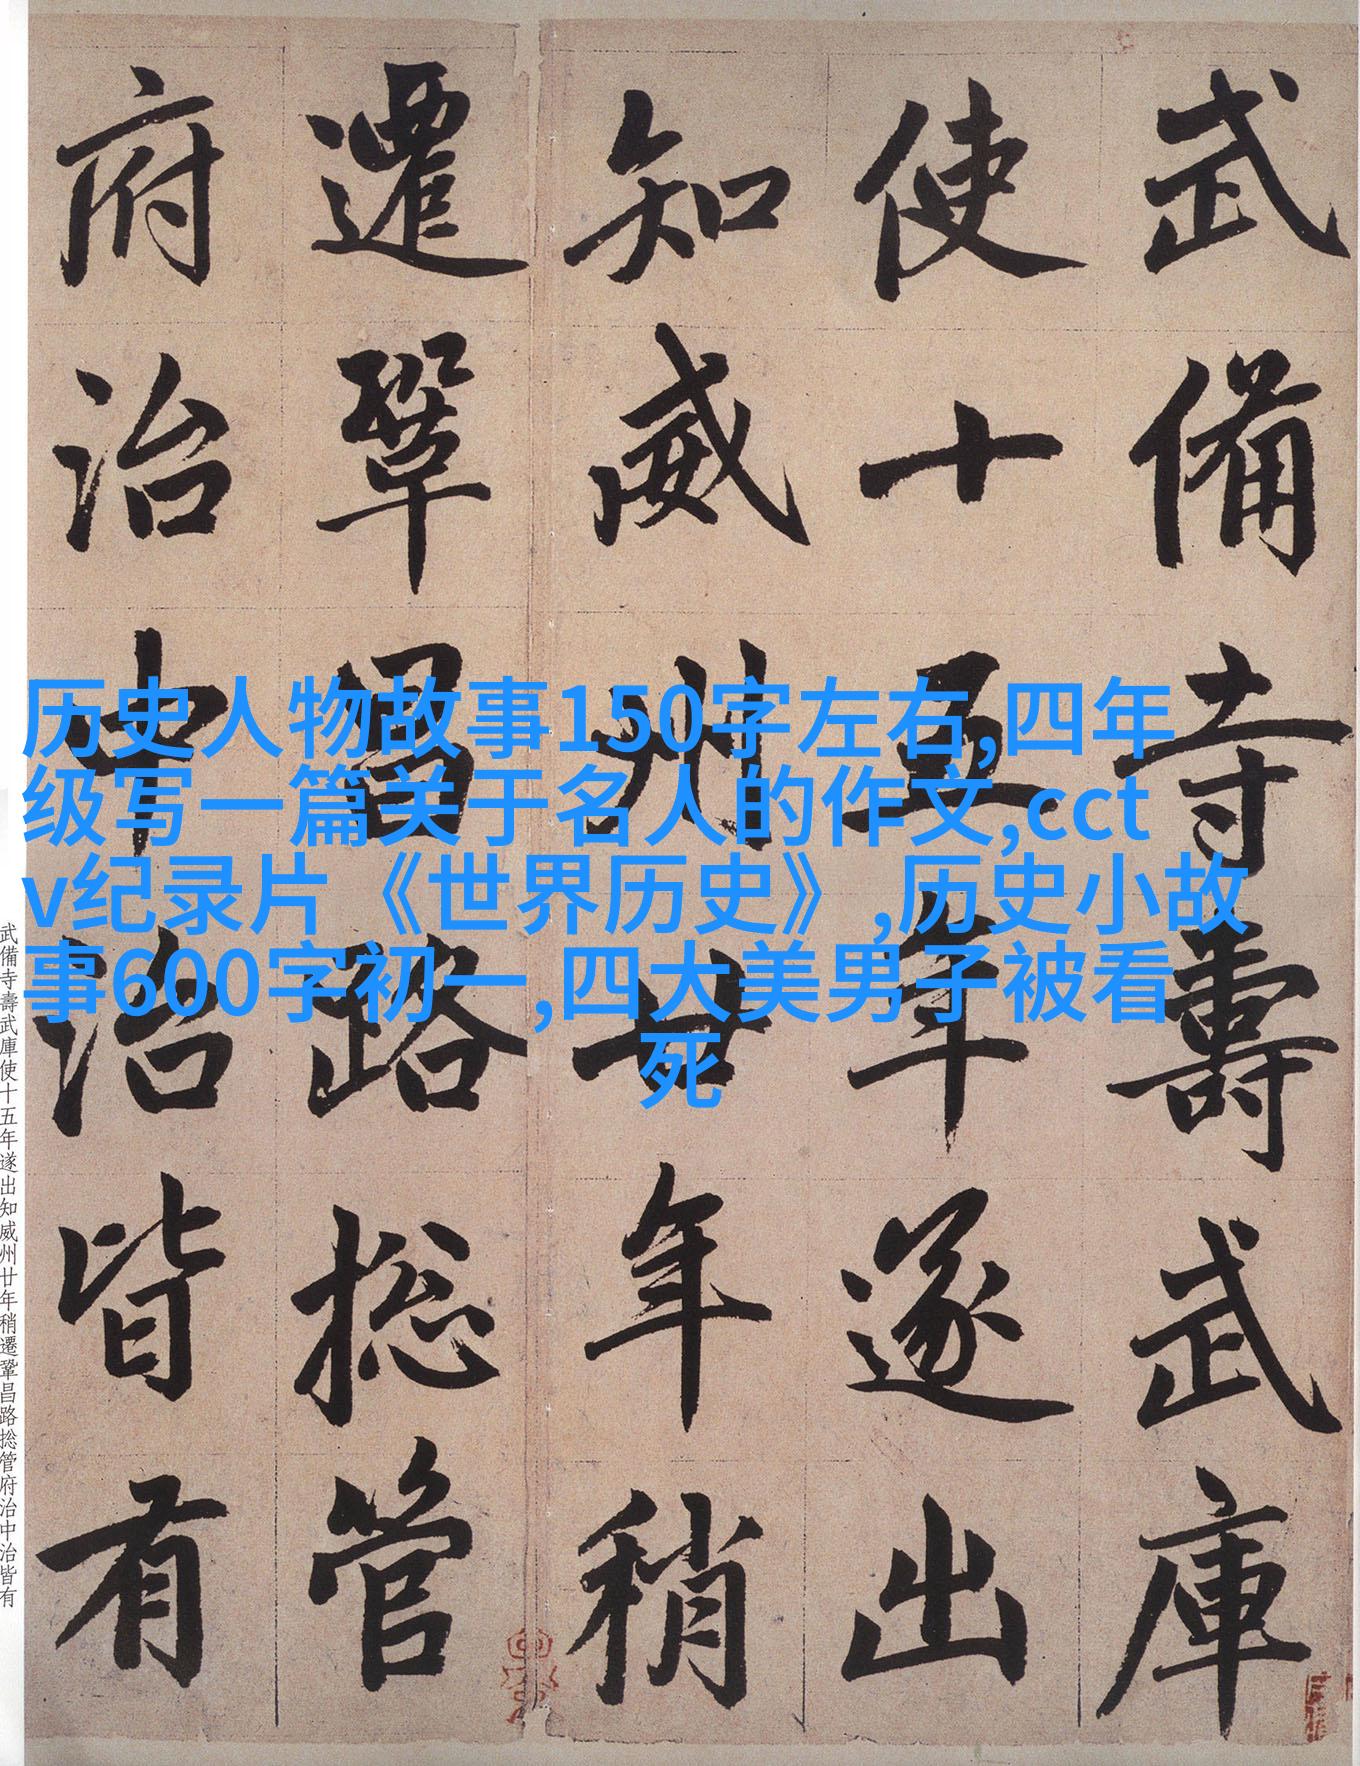 武備寺壽武庫
使十五年遂出
知威州廿年稍
遷鞏昌路捴管
府治中治皆有
历史人物故事150字左右,四年
级写一篇关于名人的作文,cct
v纪录片《世界历史》,历史小故
事600字初一,四大美男子被看
死
武備寺壽武庫使十五年遂出知威州廿年稍遷鞏昌路捴管府治中治皆有